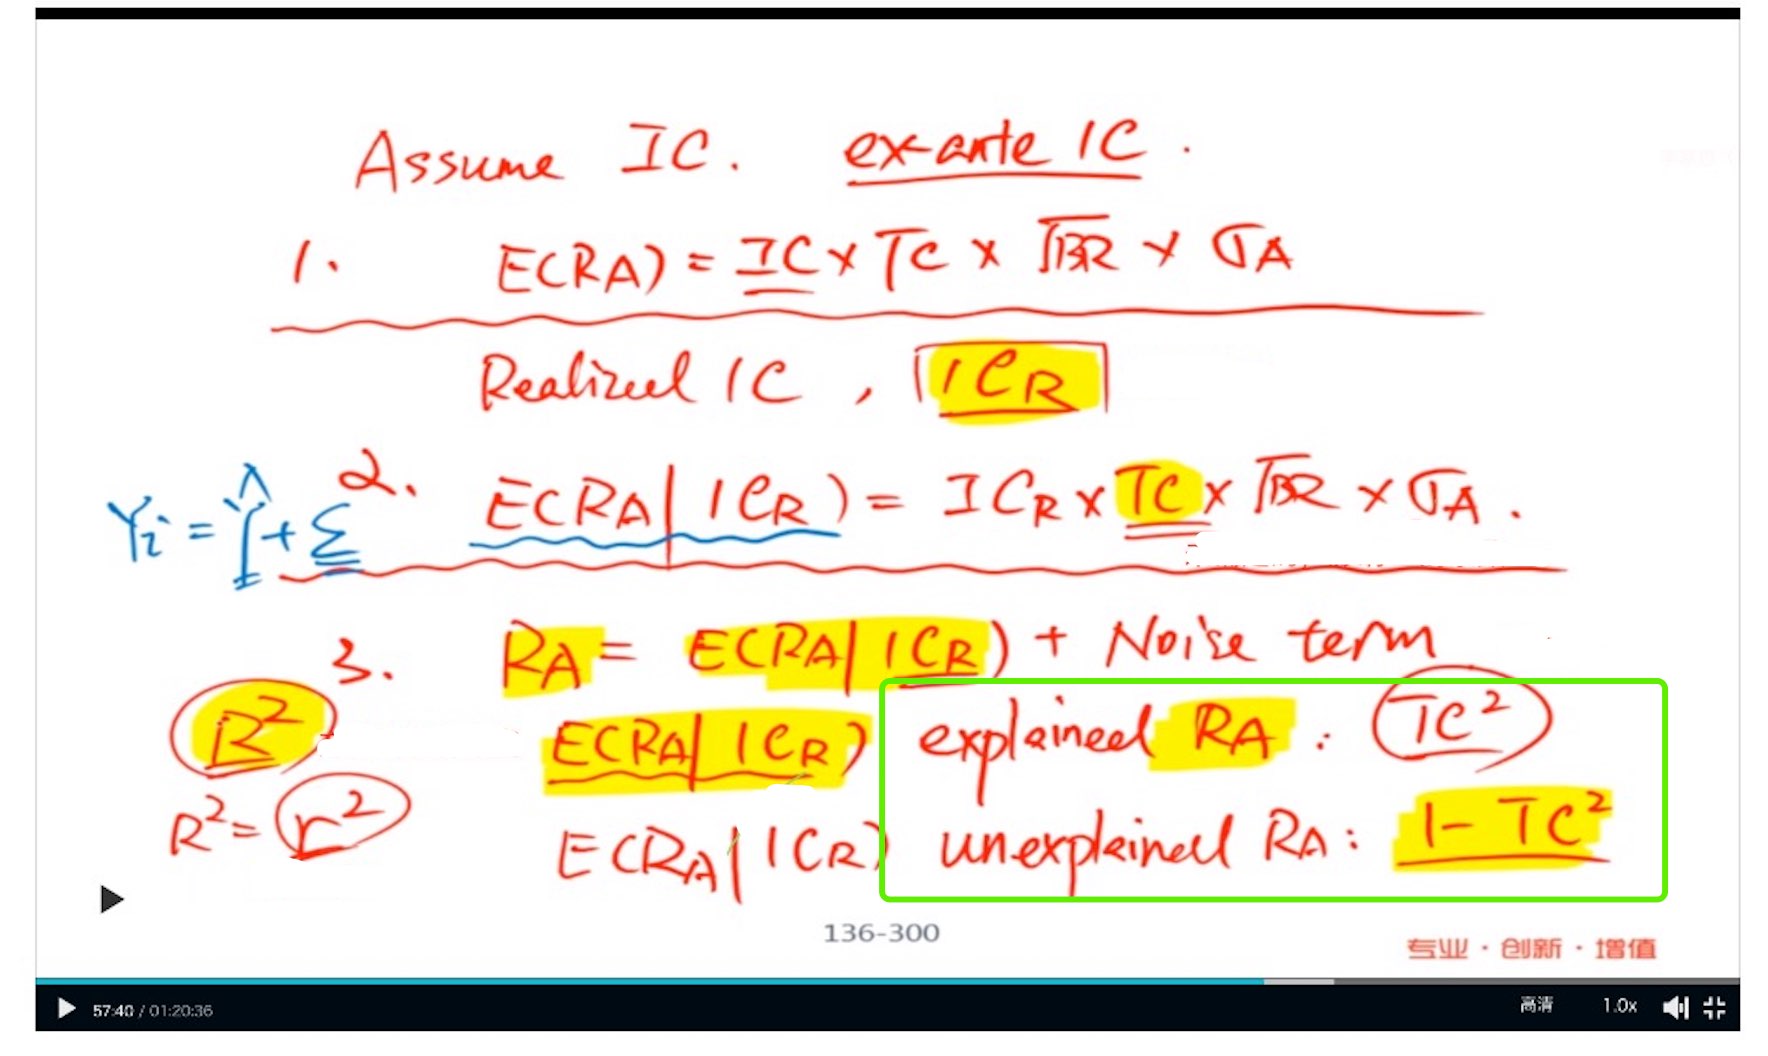 Assume IC. ex-ante IC.
1. E(RA) = IC × TC × √BR × σA
Realized IC, ICR
Yi = Ŷ + Σ
2. E(RA|ICR) = ICR × TC × √BR × σA.
3. RA = E(RA|ICR) + Noise term
R² E(RA|ICR) explained RA: TC²
R² = r² E(RA|ICR) unexplained RA: 1 - TC²
136-300
专业·创新·增值
57:40 / 01:20:36 高清 1.0x